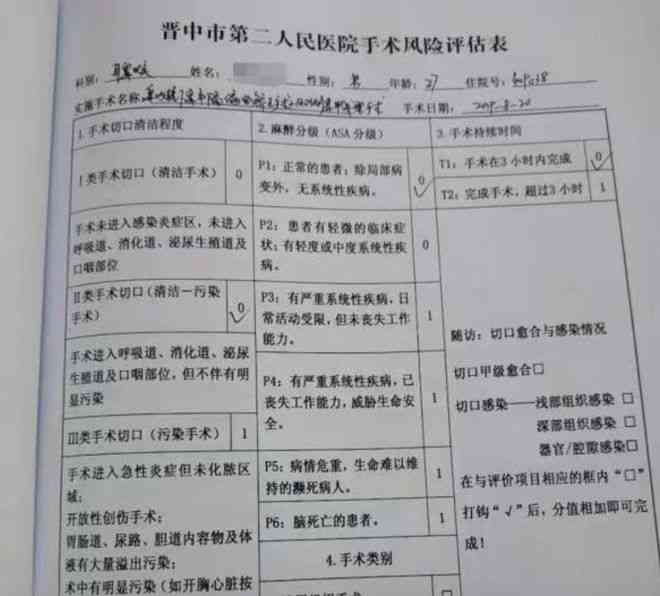 晋中市第二人民医院手术风险评估表
科别： 姓名： 性别：男 年龄：27 住院号：
实施手术名称 手术日期：
1.手术切口清洁程度
Ⅰ类手术切口（清洁手术） 0
手术未进入感染炎症区，未进入
呼吸道、消化道、泌尿生殖道及
口咽部位
Ⅱ类手术切口（清洁－污染
手术） 0 √
手术进入呼吸道、消化道、泌尿
生殖道及口咽部位，但不伴有明
显污染
Ⅲ类手术切口（污染手术） 1
手术进入急性炎症但未化脓区
域；
开放性创伤手术；
胃肠道、尿路、胆道内容物及体
液有大量溢出污染；
术中有明显污染（如开胸心脏按
2.麻醉分级（ASA 分级）
P1：正常的患者；除局部病
变外，无系统性疾病。 0 √
P2：患者有轻微的临床症
状；有轻度或中度系统性疾
病。 0
P3：有严重系统性疾病，日
常活动受限，但未丧失工作
能力。 1
P4：有严重系统性疾病，已
丧失工作能力，威胁生命安
全。 1
P5：病情危重，生命难以维
持的濒死病人。 1
P6：脑死亡的患者。 1
4.手术类别
3.手术持续时间
T1：手术在3小时内完成 0 √
T2：完成手术，超过3小时 1
随访：切口愈合与感染情况
切口甲级愈合□
切口感染——浅部组织感染 □
深部组织感染 □
器官/腔隙感染□
在与评价项目相应的框内“□”
打钩“√”后，分值相加即可完
成！